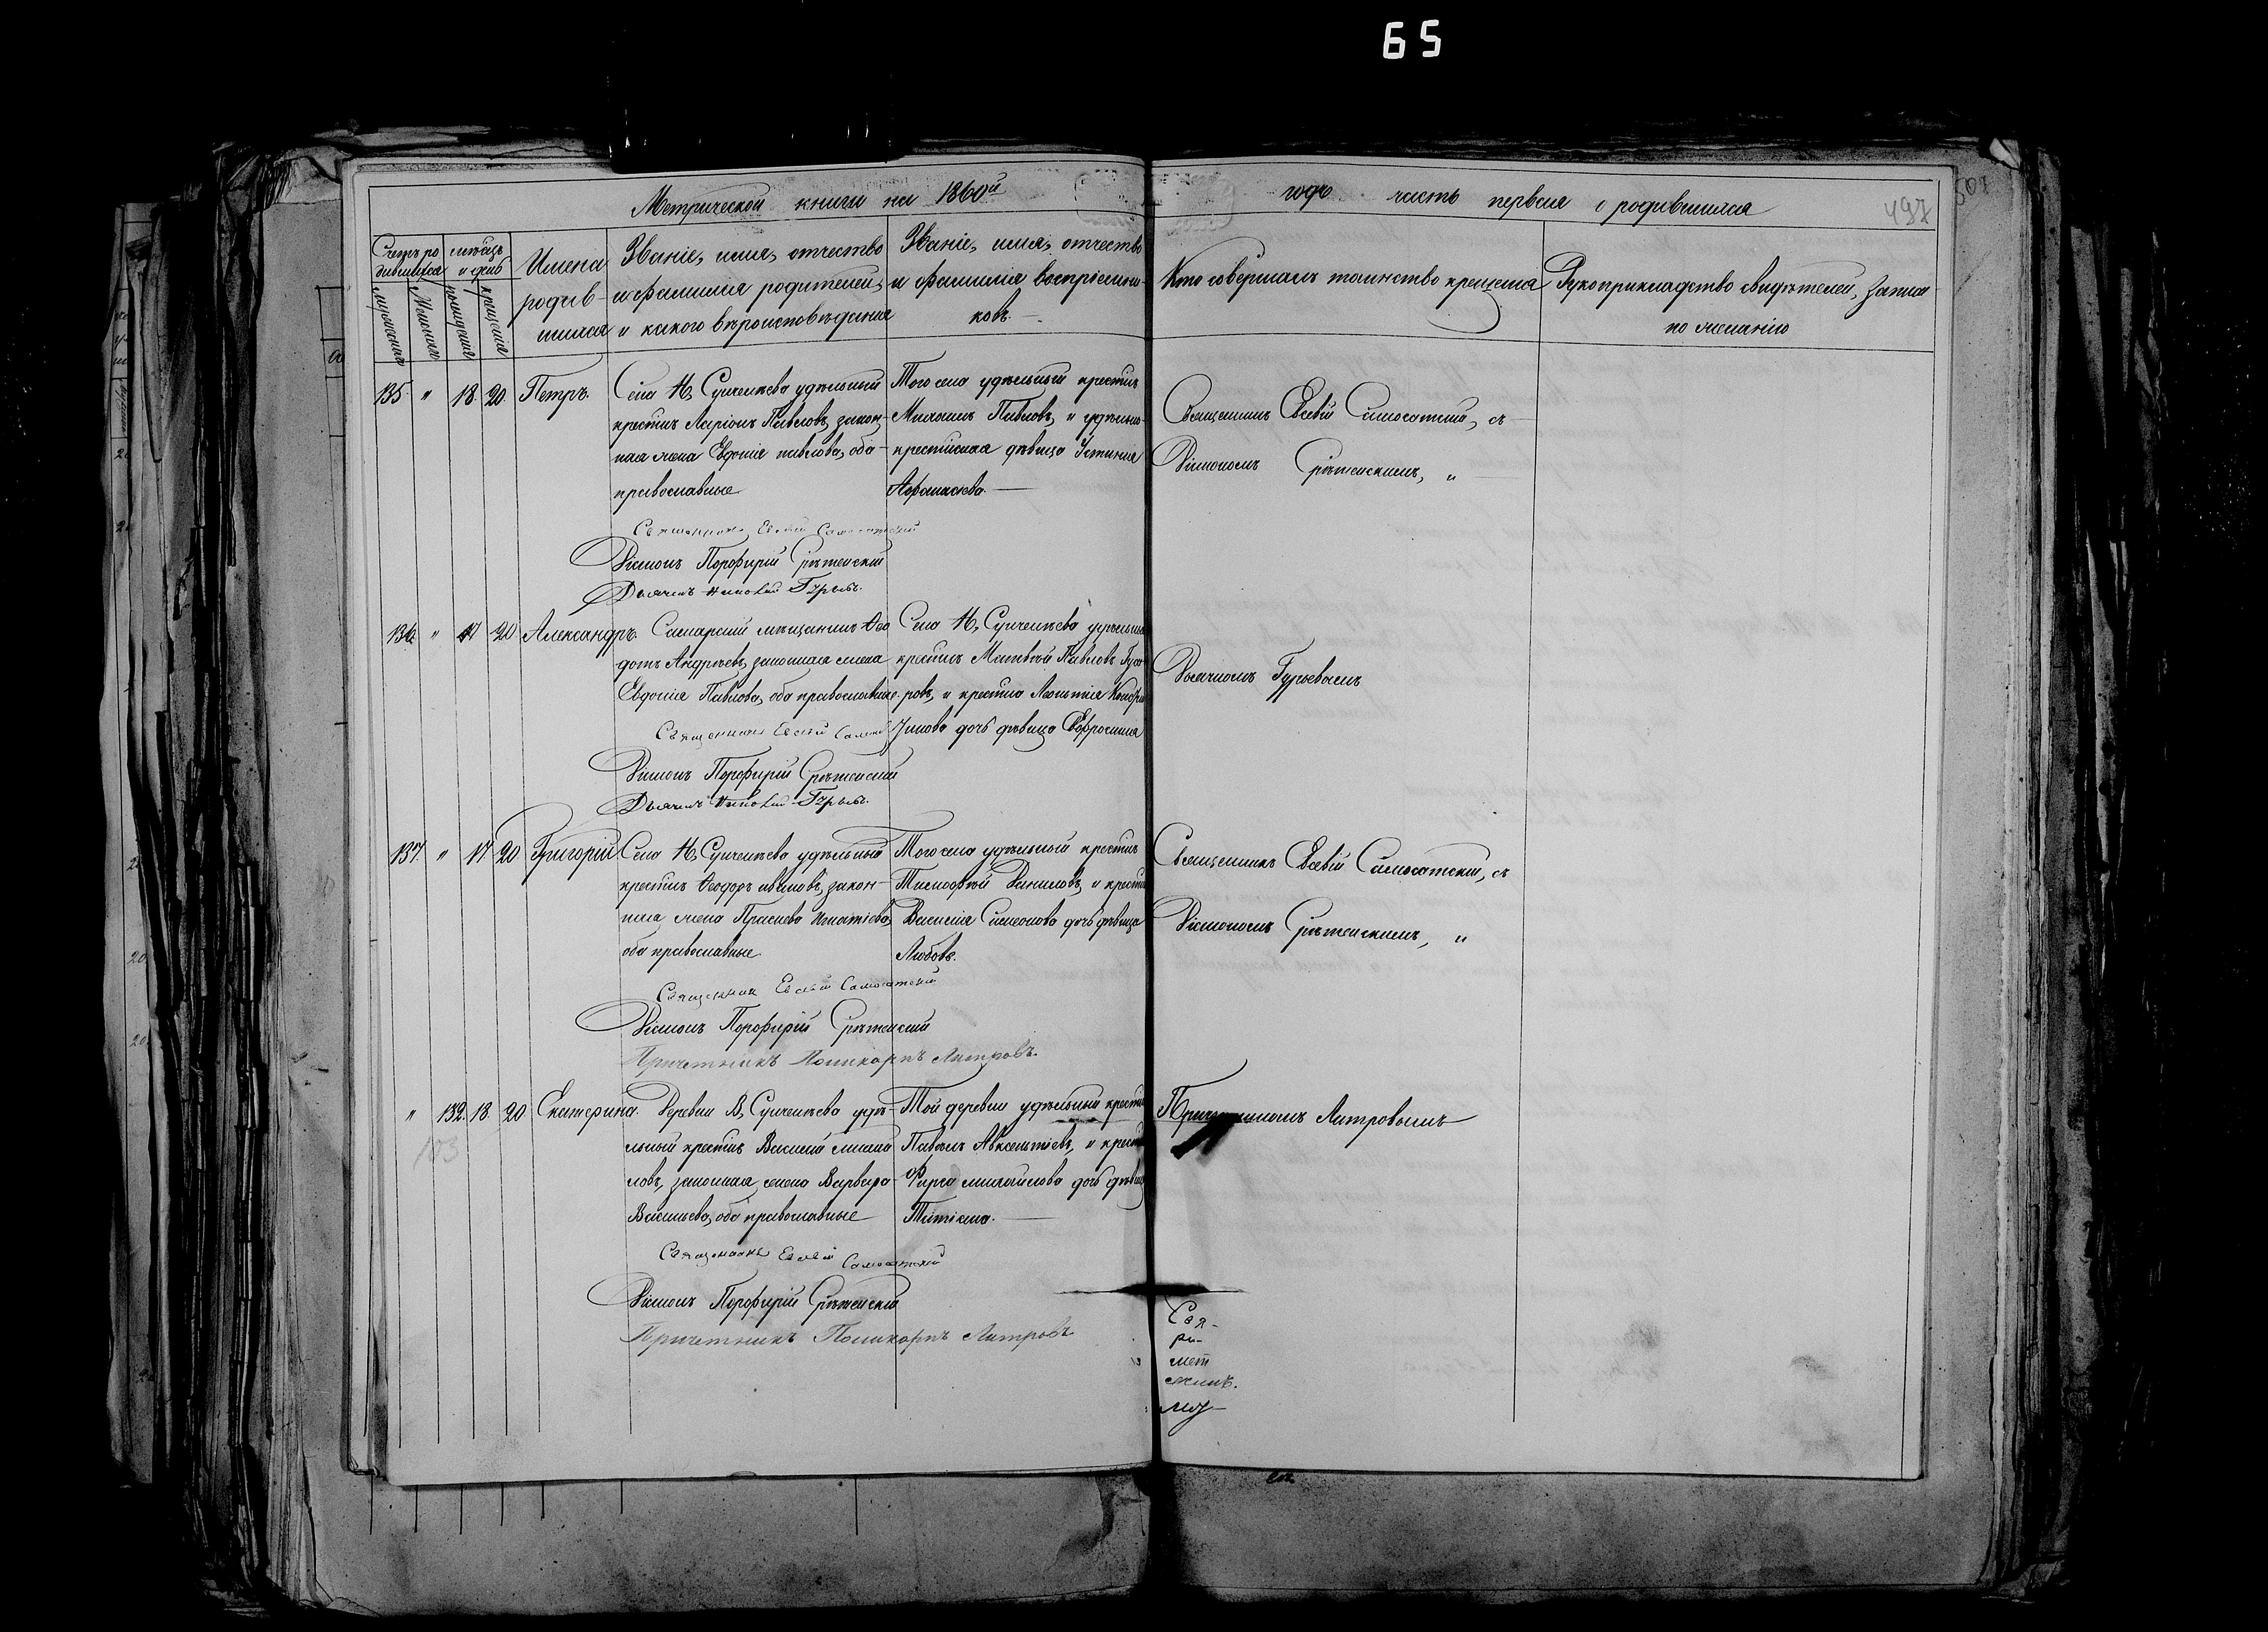 65
Метрической книги на 1860й годъ часть первая о родившихся
497
501
Счетъ родившихся
мужескаго
женскаго
мѣсяцъ и день
рожденія
крещенія
Имена родившихся
Званіе, имя, отчество
и фамилія родителей,
и какого вѣроисповѣданія
Званіе, имя, отчество
и фамилія воспріемниковъ.
Кто совершалъ таинство крещенія
Рукоприкладство свидѣтелей, записи
по желанію
135 " 18 20 Петръ.
Села Н, Сунчелѣева удѣльный
крестнъ Ларіонъ Павловъ, закон-
ная жена Евдокія павлова, оба
православные
Того села удѣльный крестнъ
Михаилъ Павловъ, и удѣльно-
крестьянская дѣвица Устинія
Афанасьева.
Священникъ Евсевій Самосатскій, съ
Діакономъ Срѣтенскимъ, "
Священникъ Евсевій Самосатскій
Діаконъ Порофирій Срѣтенскій
Дьячекъ Николай Гурьевъ.
136 " 17 20 Александръ.
Самарскій мѣщанинъ Ѳео
дотъ Андрѣевъ, законная жена
Евдокія Павлова, оба православные.
Села Н, Сунчелѣева удѣльный
крестнъ Матвѣй Павловъ
ровъ, и крестна Леонтія
дочь дѣвица Евфросинія
Дьячкомъ Гурьевымъ
Священникъ Евсевій
Діаконъ Порофирій Срѣтенскій
Дьячекъ Николай Гурьевъ.
137. " 17 20 Григорій
Села Н, Сунчелѣева удѣльный
крестнъ Ѳеодоръ ивановъ, закон-
ная жена Прасковья Игнатіева,
оба православные.
Того села удѣльный крестнъ
Тимофѣй Даниловъ, и крестна
Василія Симеонова дочь дѣвица
Любовь.
Священникъ Евсевій Самосатскій, съ
Діакономъ Срѣтенскимъ, "
Священникъ Евсевій Самосатскій
Діаконъ Порофирій Срѣтенскій
Причетникъ Поликарпъ Лятровъ.
" 132. 18 20 Екатерина.
103
Деревни В, Сунчелѣева удѣ-
льный крестнъ Василій михаи
ловъ, законная жена Варвара
Васильева, оба православные
Той деревни удѣльный крестнъ
Павелъ Авксентіевъ, и крестна
Фирса михайлова дочь дѣвица
Татіана.
Причетникомъ Лятровымъ
Священникъ Евсевій Самосатскій
Діаконъ Порофирій Срѣтенскій
Причетникъ Поликарпъ Лятровъ
Свя-
ри-
мет